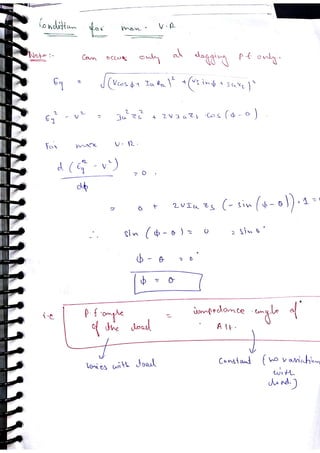 Condition for max. V.R
Note:- Can occur only at lagging p.f only.
Eg = √(Vcosϕ + IaRa)² + (Vsinϕ + IaXs)²
Eg² - V² = Ia²Zs² + 2VIaZs cos(ϕ-θ).
For max V.R.
d(Eg² - V²)/dϕ = 0.
= 0 + 2VIaZs (-sin(ϕ-θ)).1 =
∴ sin(ϕ-θ) = 0 = sin0°
ϕ-θ = 0°
ϕ = θ
i.e P.f angle of the load = impedance angle of Alt.
Varies with load
Constant (no variation with load)